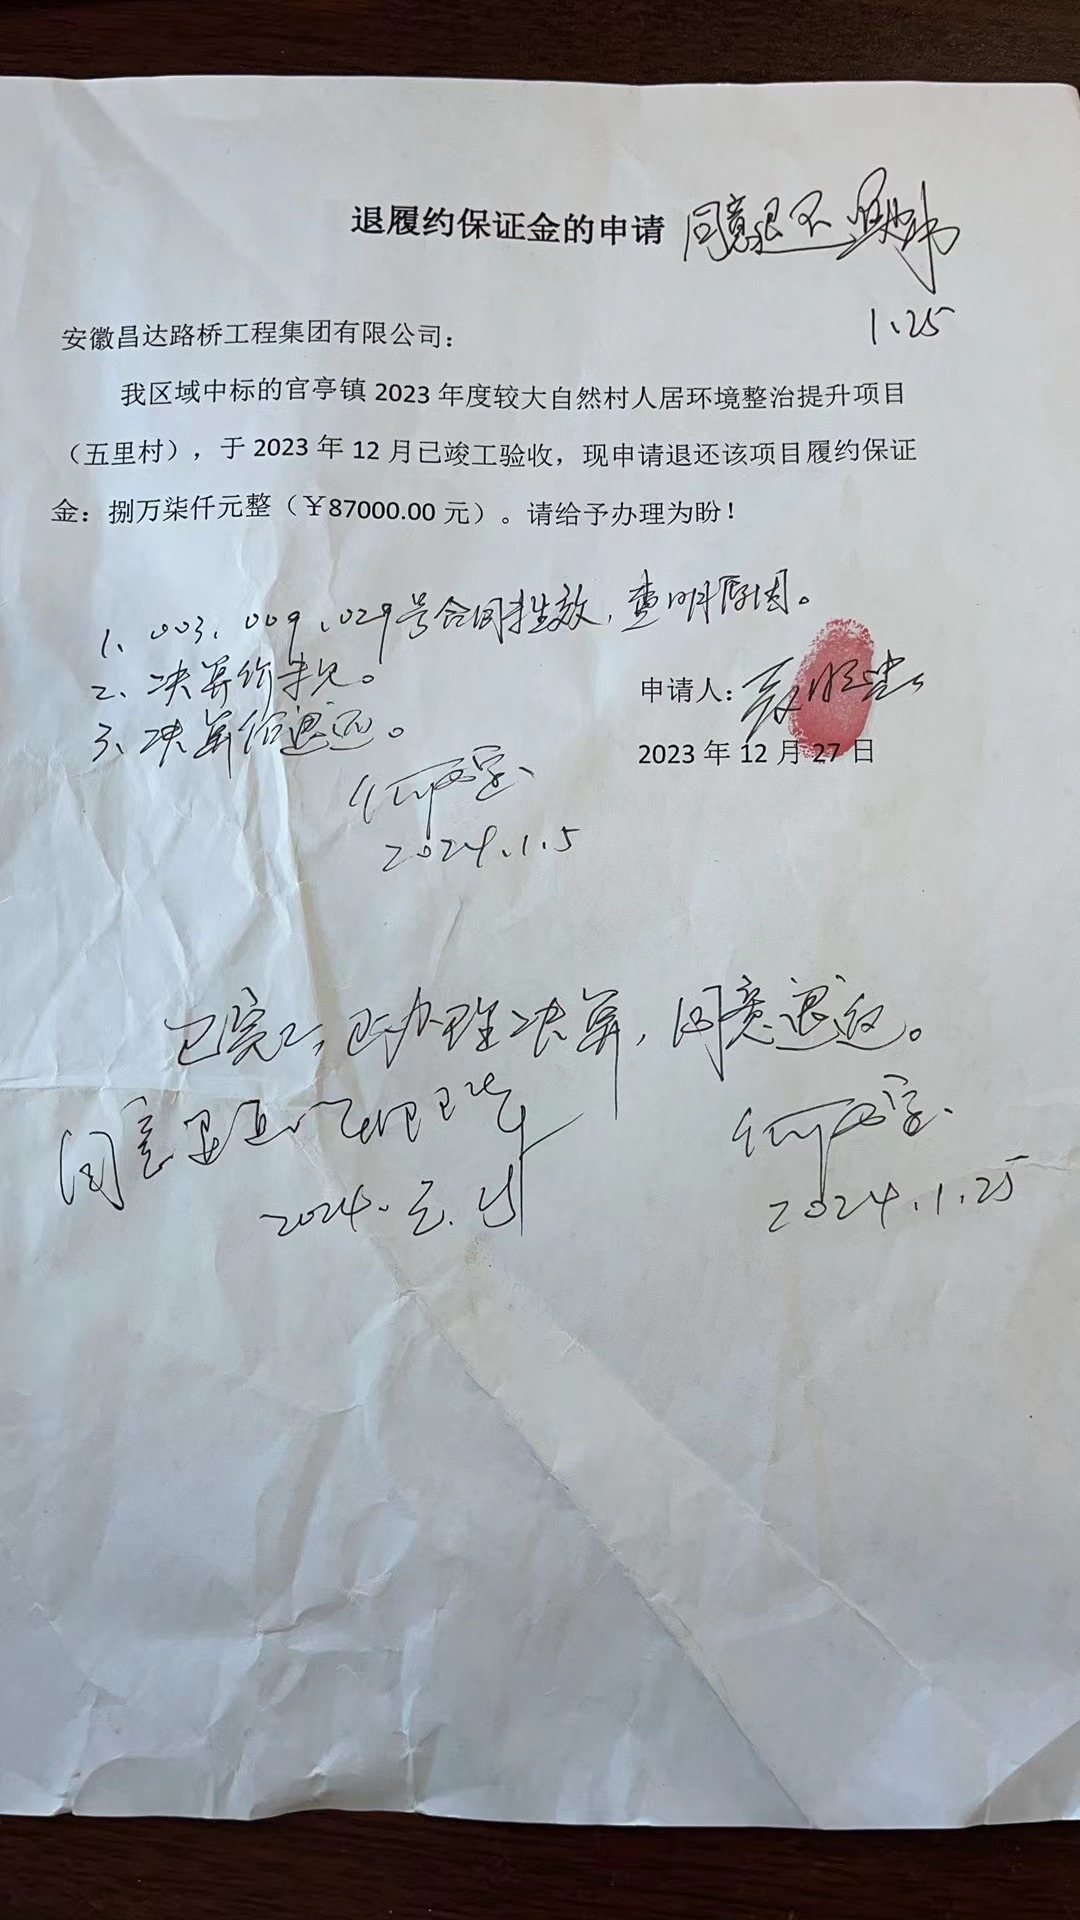 退履约保证金的申请 同意退还
1.25
安徽昌达路桥工程集团有限公司：
我区域中标的官亭镇 2023 年度较大自然村人居环境整治提升项目
（五里村），于 2023 年 12 月已竣工验收，现申请退还该项目履约保证
金：捌万柒仟元整（￥87000.00 元）。请给予办理为盼！
1、003、009、029号合同 效，查明原因。
2、决算价
3、决算 退还。
申请人：
2023 年 12 月 27 日
2024.1.5
已完工，已办理决算，同意退还。
同意退还
2024.元.
2024.1.25